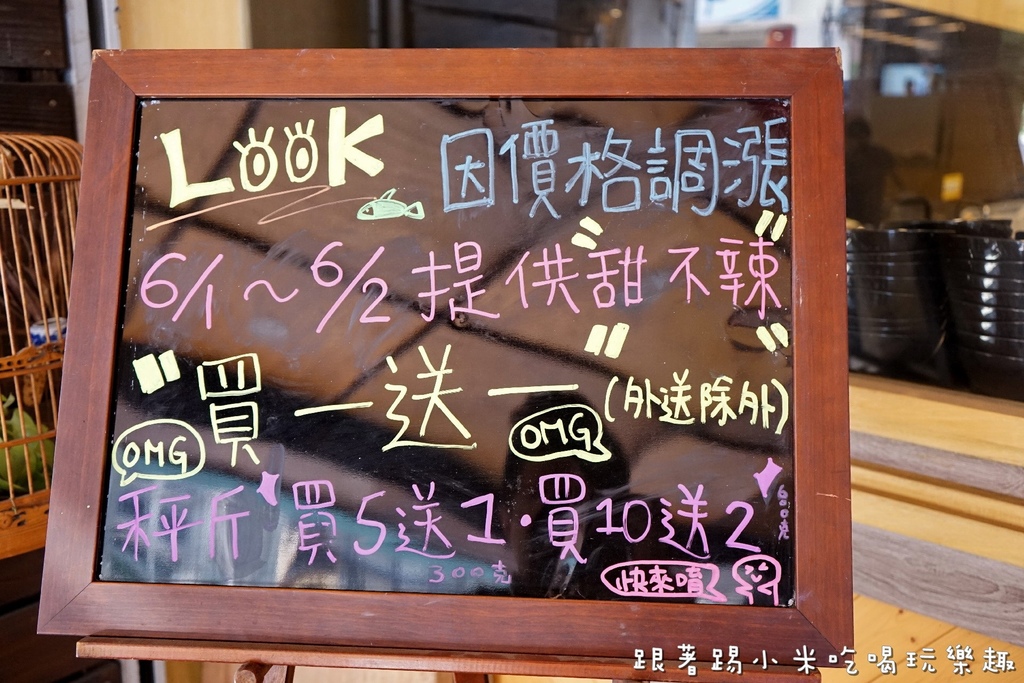 LOOK 因價格調漲
6/1~6/2 提供甜不辣
"買一送一" (外送除外)
OMG OMG
秤斤 買5送1·買10送2
300克 600克
快來唷
跟著踢小米吃喝玩樂趣